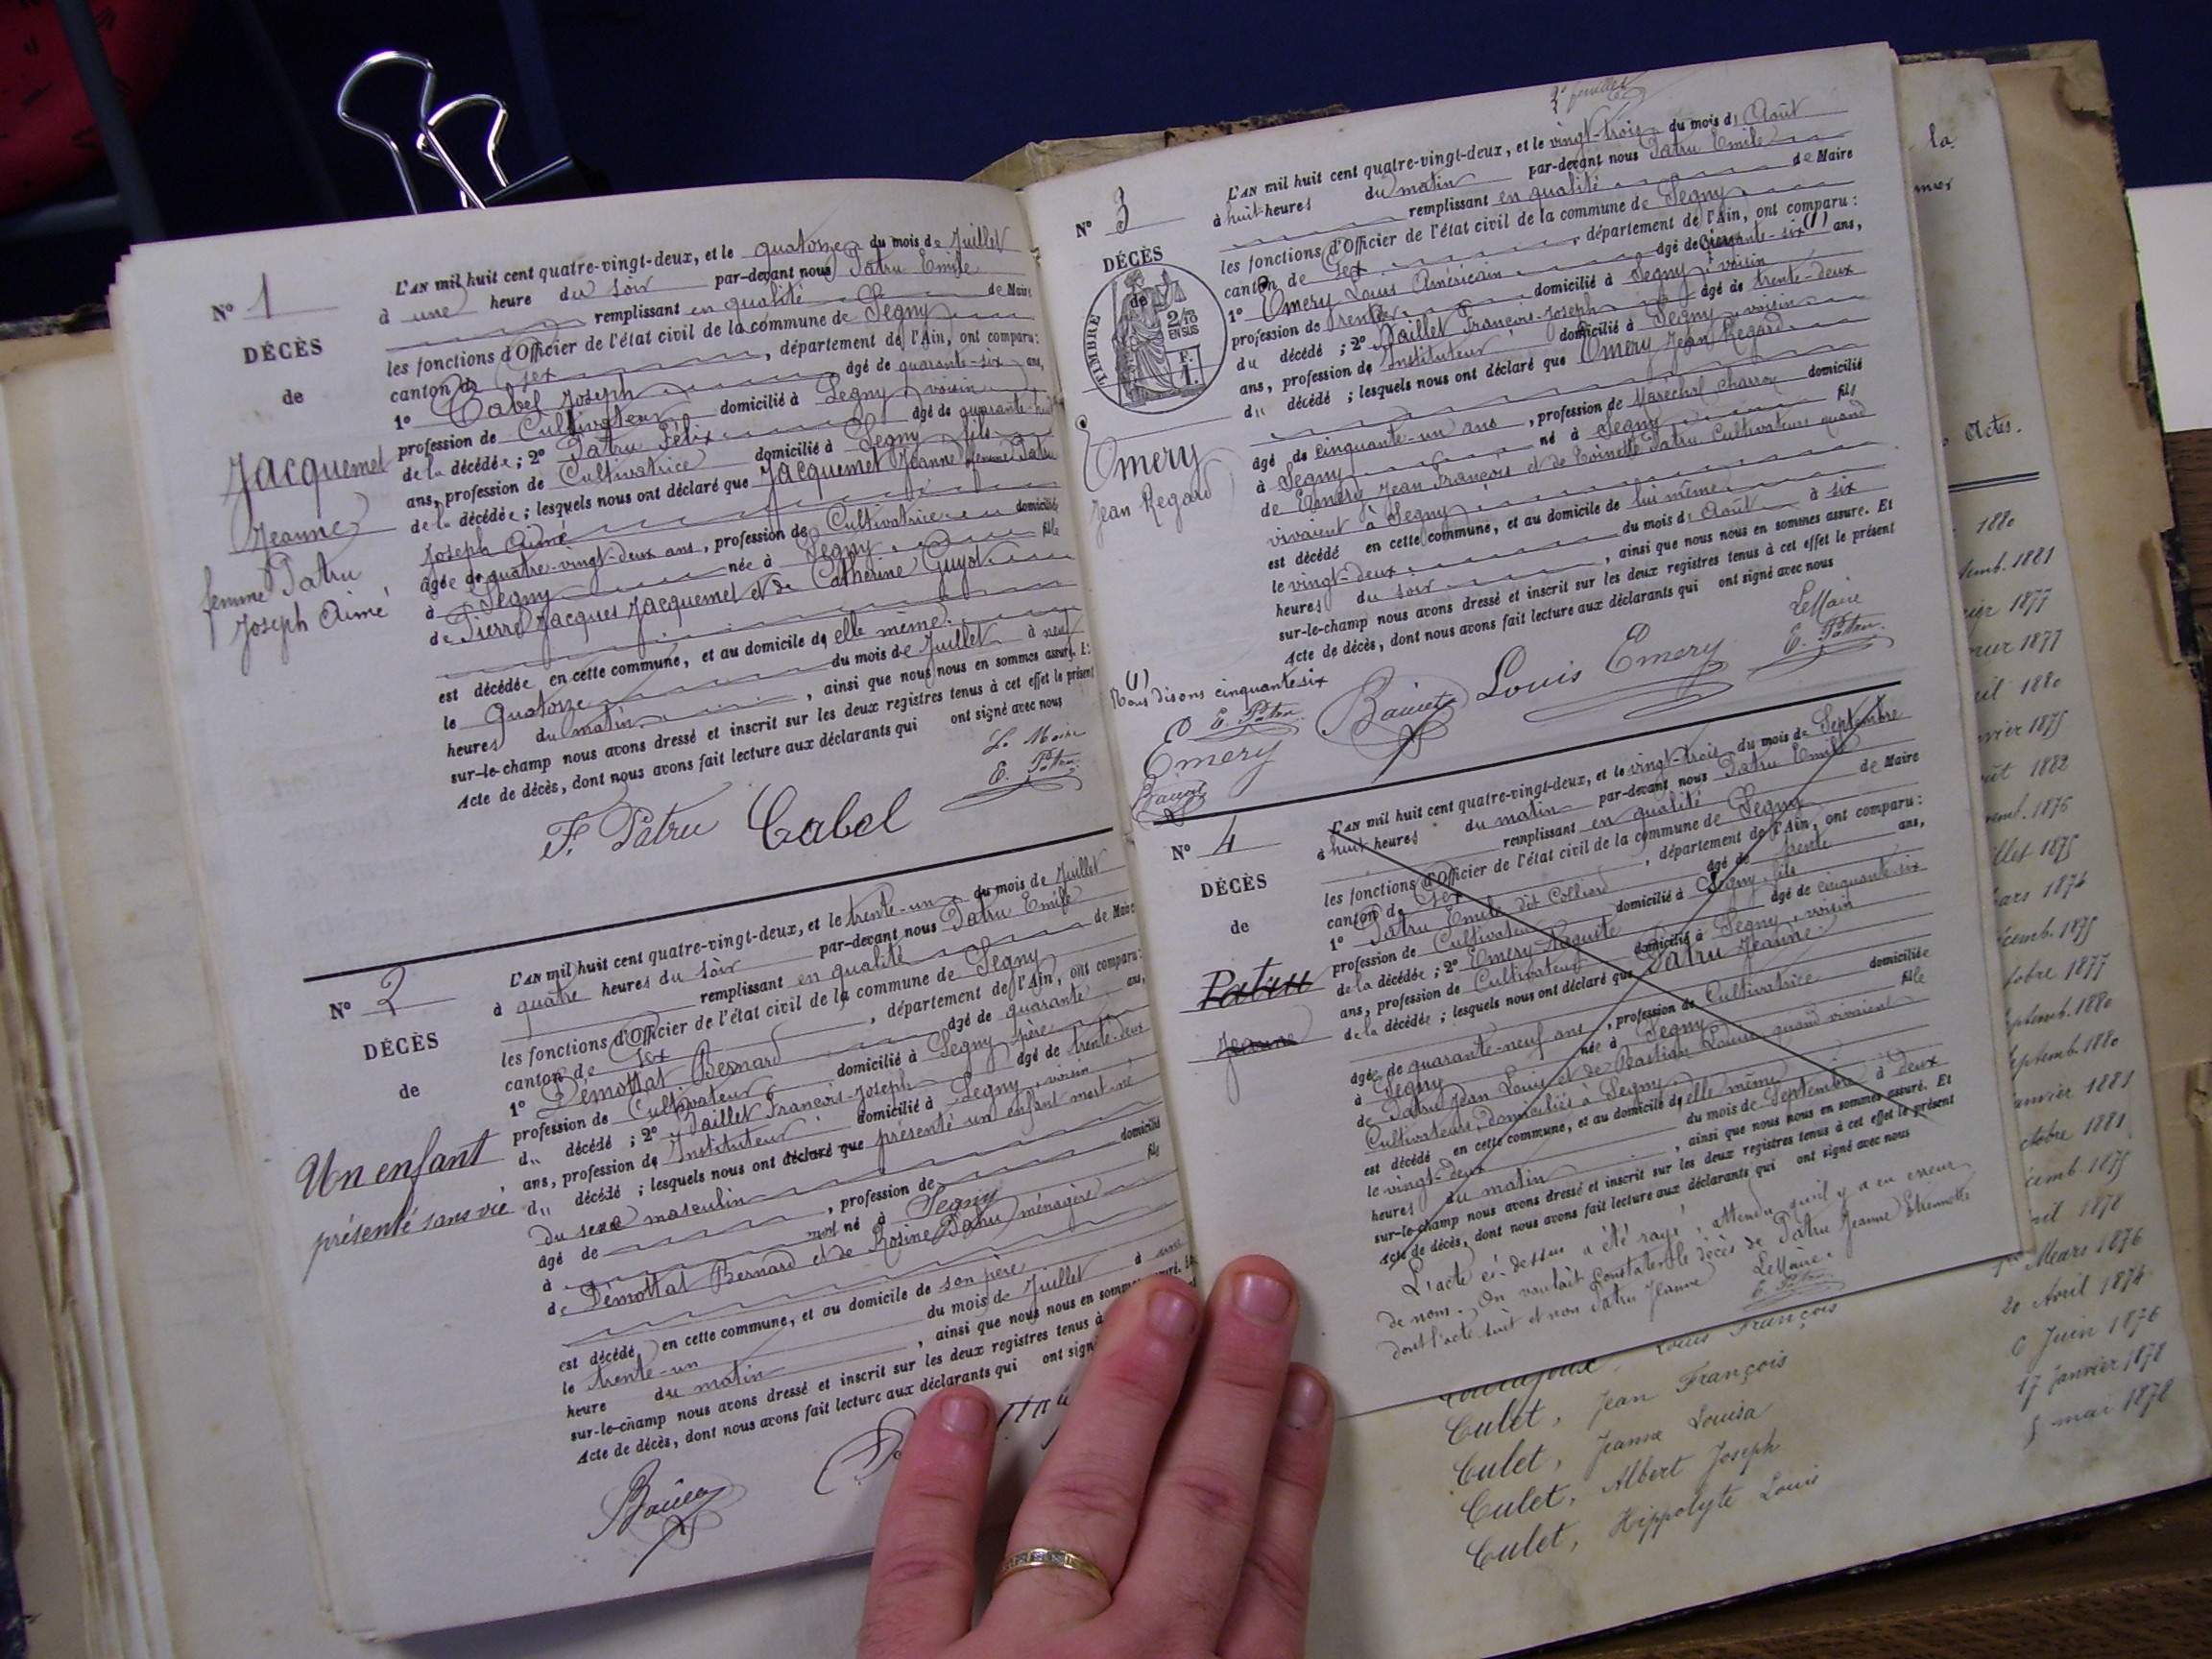 N° 1
DÉCÈS
de
Jacquemet
Jeanne
femme Patru
Joseph Aimé
L'AN mil huit cent quatre-vingt-deux, et le quatorze du mois de Juillet
à une heure du soir par-devant nous Patru Emile
remplissant en qualité de Maire
les fonctions d'Officier de l'état civil de la commune de Segny
canton de Gex, département de l'Ain, ont comparu:
1° Cabel Joseph âgé de quarante-six ans,
profession de Cultivateur domicilié à Segny, voisin
de la décédée; 2° Patru Félix âgé de quarante-huit
ans, profession de Cultivatrice domicilié à Segny, fils
de la décédée; lesquels nous ont déclaré que Jacquemet Jeanne femme Patru
Joseph Aimé
âgée de quatre-vingt-deux ans, profession de Cultivatrice domiciliée
à Segny née à Segny fille
de Pierre Jacques Jacquemet et de Catherine Guyot
est décédée en cette commune, et au domicile de elle même
le quatorze du mois de Juillet à neuf
heures du matin, ainsi que nous nous en sommes assuré. Et
sur-le-champ nous avons dressé et inscrit sur les deux registres tenus à cet effet le présent
Acte de décès, dont nous avons fait lecture aux déclarants qui ont signé avec nous
Le Maire
E. Patru
F. Patru Cabel
N° 2
DÉCÈS
de
Un enfant
présenté sans vie
L'AN mil huit cent quatre-vingt-deux, et le trente-un du mois de Juillet
à quatre heures du soir par-devant nous Patru Emile
remplissant en qualité de Maire
les fonctions d'Officier de l'état civil de la commune de Segny
canton de Gex, département de l'Ain, ont comparu:
1° Démottat Bernard âgé de quarante ans,
profession de Cultivateur domicilié à Segny, père
d" décédé; 2° François-Joseph âgé de trente-deux
ans, profession de Instituteur domicilié à Segny, voisin
d" décédé; lesquels nous ont déclaré que présenté un enfant mort-né
du sexe masculin
âgé de , profession de domicilié
à mort né à Segny fils
de Démottat Bernard et de Rosine Patru ménagère
est décédé en cette commune, et au domicile de son père
le trente-un du mois de Juillet à une
heure du matin, ainsi que nous nous en sommes assuré. Et
sur-le-champ nous avons dressé et inscrit sur les deux registres tenus à
Acte de décès, dont nous avons fait lecture aux déclarants qui ont signé
2e feuillet
N° 3
DÉCÈS
de
TIMBRE
2/10
EN SUS
F.
1.
Emery
Jean Regard
L'AN mil huit cent quatre-vingt-deux, et le vingt-trois du mois d' Août
à huit heures du matin par-devant nous Patru Emile
remplissant en qualité de Maire
les fonctions d'Officier de l'état civil de la commune de Segny
canton de Gex, département de l'Ain, ont comparu:
1° Emery Louis Américain âgé de cinquante-six (1) ans,
profession de rentier domicilié à Segny, voisin
du décédé; 2° François-Joseph âgé de trente-deux
ans, profession de Instituteur domicilié à Segny, voisin
d" décédé; lesquels nous ont déclaré que Emery Jean Regard
âgé de cinquante-un ans, profession de Maréchal charron domicilié
à Segny né à Segny fils
de Emery Jean François et de Toinette Patru Cultivateurs quand
vivaient à Segny
est décédé en cette commune, et au domicile de lui même
le vingt-deux du mois d' Août à six
heures du soir, ainsi que nous nous en sommes assuré. Et
sur-le-champ nous avons dressé et inscrit sur les deux registres tenus à cet effet le présent
Acte de décès, dont nous avons fait lecture aux déclarants qui ont signé avec nous
Le Maire
E. Patru
Louis Emery
(1)
Nous disons cinquante six
E. Patru
Emery
N° 4
DÉCÈS
de
Patru
Jeanne
L'AN mil huit cent quatre-vingt-deux, et le vingt-trois du mois de Septembre
à huit heures du matin par-devant nous Patru Emile
remplissant en qualité de Maire
les fonctions d'Officier de l'état civil de la commune de Segny
canton de Gex, département de l'Ain, ont comparu:
1° Patru Emile dit Colliard âgé de trente ans,
profession de Cultivateur domicilié à Segny, fils
de la décédée; 2° Emery âgé de cinquante-six
ans, profession de Cultivateur domicilié à Segny, voisin
de la décédée; lesquels nous ont déclaré que Patru Jeanne
âgée de quarante-neuf ans, profession de Cultivatrice domiciliée
à Segny née à Segny fille
de Patru Jean Louis et de Louise quand vivaient
Cultivateurs, domiciliés à Segny
est décédé en cette commune, et au domicile de elle même
le vingt-deux du mois de Septembre à deux
heures du matin, ainsi que nous nous en sommes assuré. Et
sur-le-champ nous avons dressé et inscrit sur les deux registres tenus à cet effet le présent
Acte de décès, dont nous avons fait lecture aux déclarants qui ont signé avec nous
L'acte ci-dessus a été rayé, attendu qu'il y a eu erreur
de nom. On voulait constater le décès de Patru Jeanne Etiennette
dont l'acte suit et non Patru Jeanne Le Maire
E. Patru
Louis François
Culet, Jean François
Culet, Jeanne Louisa
Culet, Albert Joseph
Culet, Hippolyte Louis
la
Actes.
1880
1881
1877
1877
1880
1875
1882
1876
1875
1874
1875
1877
1880
Septemb. 1880
1881
1881
1875
1878
Mars 1876
20 Avril 1874
6 Juin 1876
17 Janvier 1878
5 mai 1878